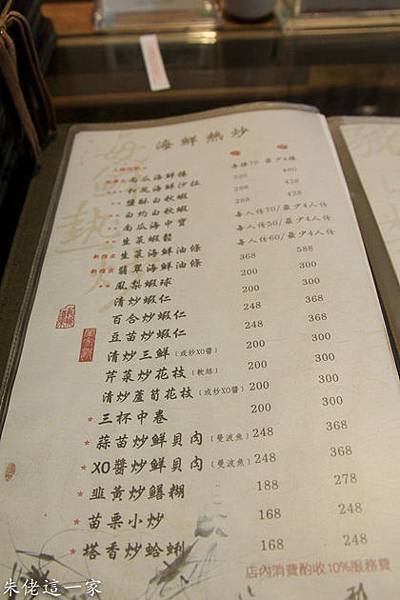 海鮮熱炒
南瓜海鮮捲 每條70/最少4條
和風海鮮沙拉 288 480
鹽酥白軟蝦 288 428
白灼白軟蝦 288 428
南瓜海中寶 每人份70/最少4人份
生菜蝦鬆 每人份50/最少4人份
生菜海鮮油條 每人份60/最少4人份
翡翠海鮮油條 368 588
鳳梨蝦球 200 300
清炒蝦仁 200 300
百合炒蝦仁 248 368
豆苗炒蝦仁 248 368
清炒三鮮(或炒XO醬) 200 300
芹菜炒花枝(軟絲) 200 300
清炒蘆筍花枝(或炒XO醬) 200 300
三杯中卷 200 300
蒜苗炒鮮貝肉(曼波魚) 248 368
XO醬炒鮮貝肉(曼波魚) 248 368
韭黃炒鱔糊 188 278
苗栗小炒 168 248
塔香炒蛤蜊 168 248
店內消費酌收10%服務費
朱佬這一家